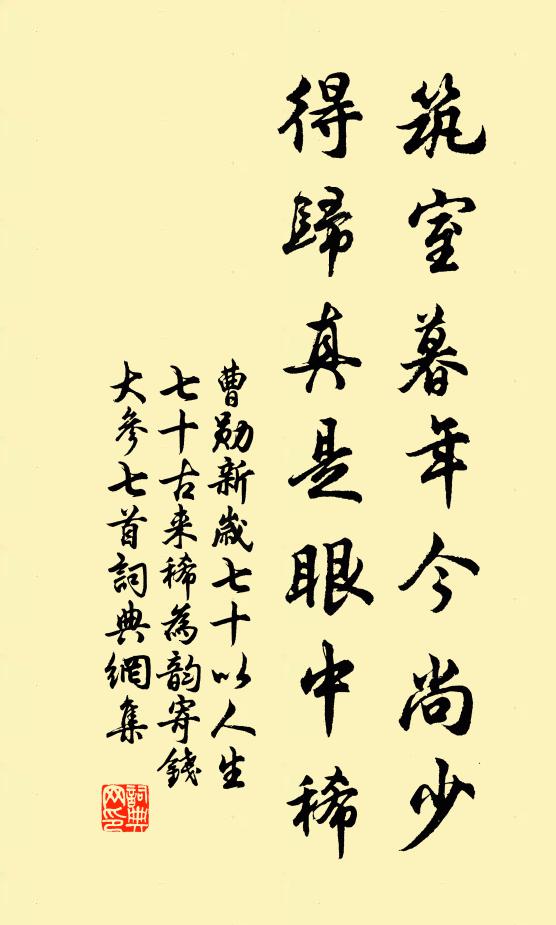 筑室暮年今尚少
得歸真是眼中稀
曹勛新歲七十以人生
七十古来稀為韵寄錢
大參七首詞典網集
詞典網印